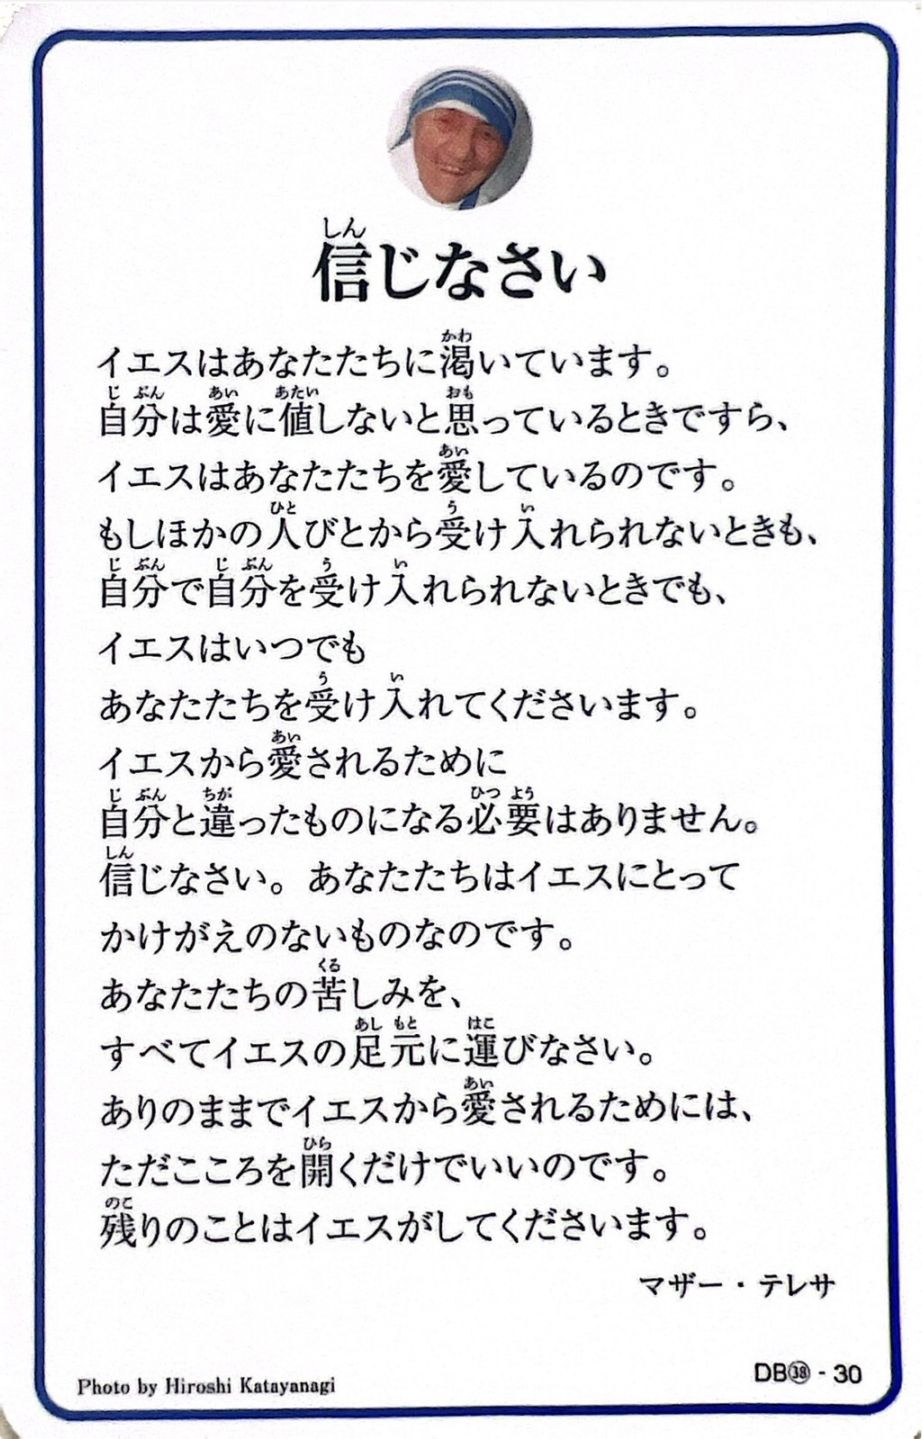 信じなさい
イエスはあなたたちに渇いています。
自分は愛に値しないと思っているときですら、
イエスはあなたたちを愛しているのです。
もしほかの人びとから受け入れられないときも、
自分で自分を受け入れられないときでも、
イエスはいつでも
あなたたちを受け入れてくださいます。
イエスから愛されるために
自分と違ったものになる必要はありません。
信じなさい。あなたたちはイエスにとって
かけがえのないものなのです。
あなたたちの苦しみを、
すべてイエスの足元に運びなさい。
ありのままでイエスから愛されるためには、
ただこころを開くだけでいいのです。
残りのことはイエスがしてくださいます。
マザー・テレサ
Photo by Hiroshi Katayanagi
DB㊳-30